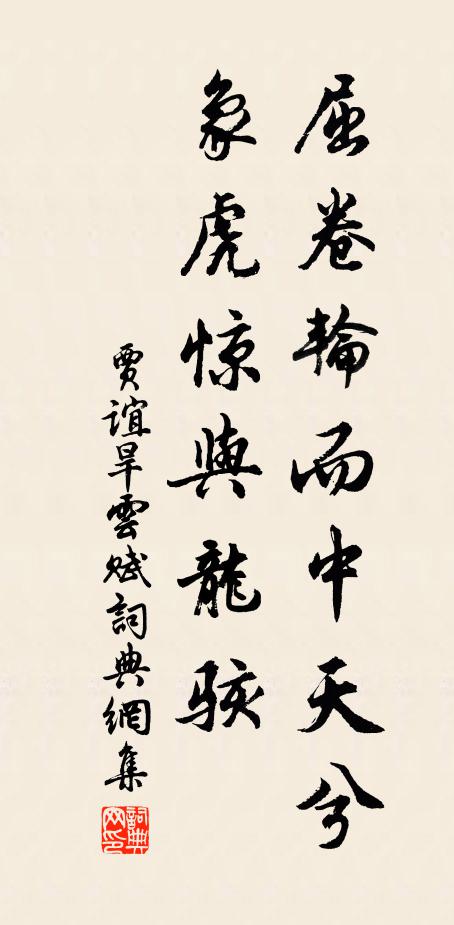 屈卷輪而中天兮
象虎惊與龍骇
賈誼旱雲賦詞典網集
詞典网印